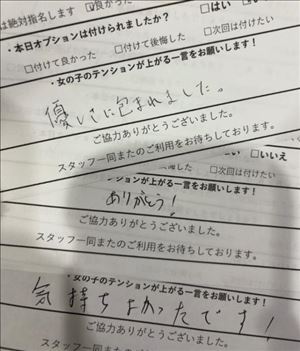 は絶対指名します ☑良かった
□はい
□いい
・本日オプションは付けられましたか?
□付けて良かった □付けて後悔した □次回は付けたい
・女の子のテンションが上がる一言をお願いします!
優しさに包まれました。
ご協力ありがとうございました。
スタッフ一同またのご利用をお待ちしております。
□いいえ
□次回は付けたい
ンションが上がる一言をお願いします!
ありがとう!
ご協力ありがとうございました。
スタッフ一同またのご利用をお待ちしております。
・女の子のテンションが上がる一言をお願いします!
気持ちよかったです!
ご協力ありがとうございました。
スタッフ一同またのご利用をお待ちしております。